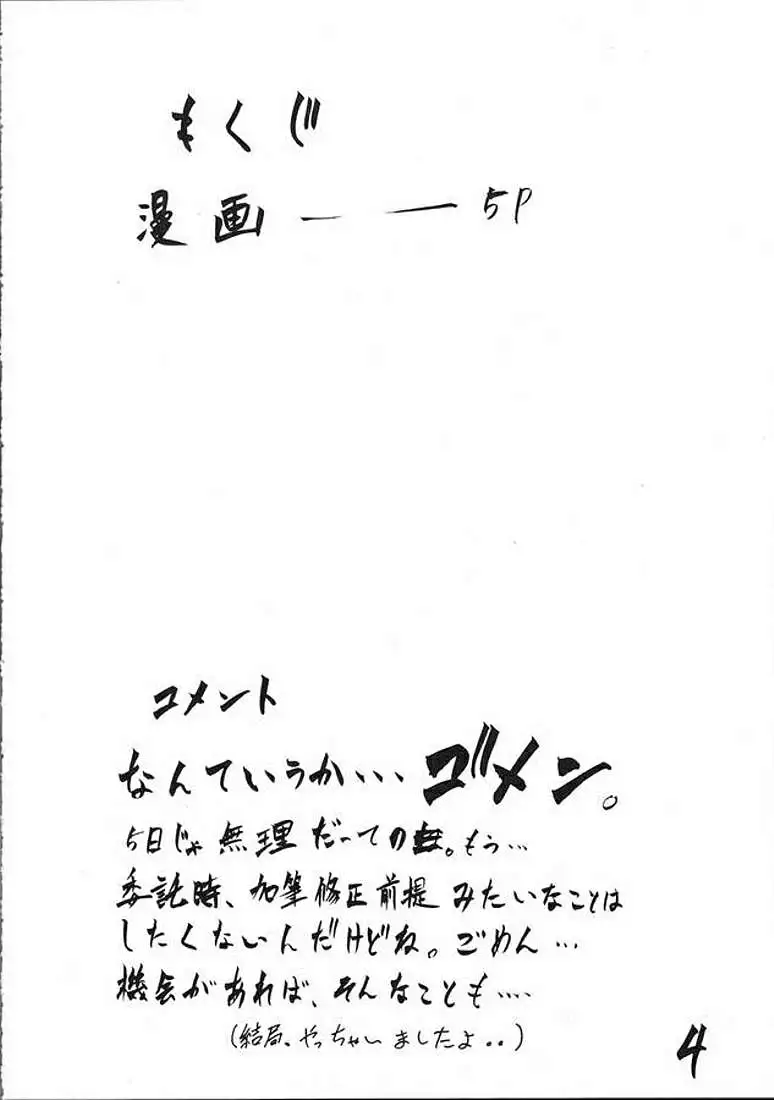 もくじ
漫画 ― ― 5P
コメント
なんていうか… ゴメン。
5日じゃ無理だっての。もう…
委託時、加筆修正前提みたいなことは
したくないんだけどね。ごめん…
機会があれば、そんなことも….
(結局、やっちゃいましたよ‥)
4